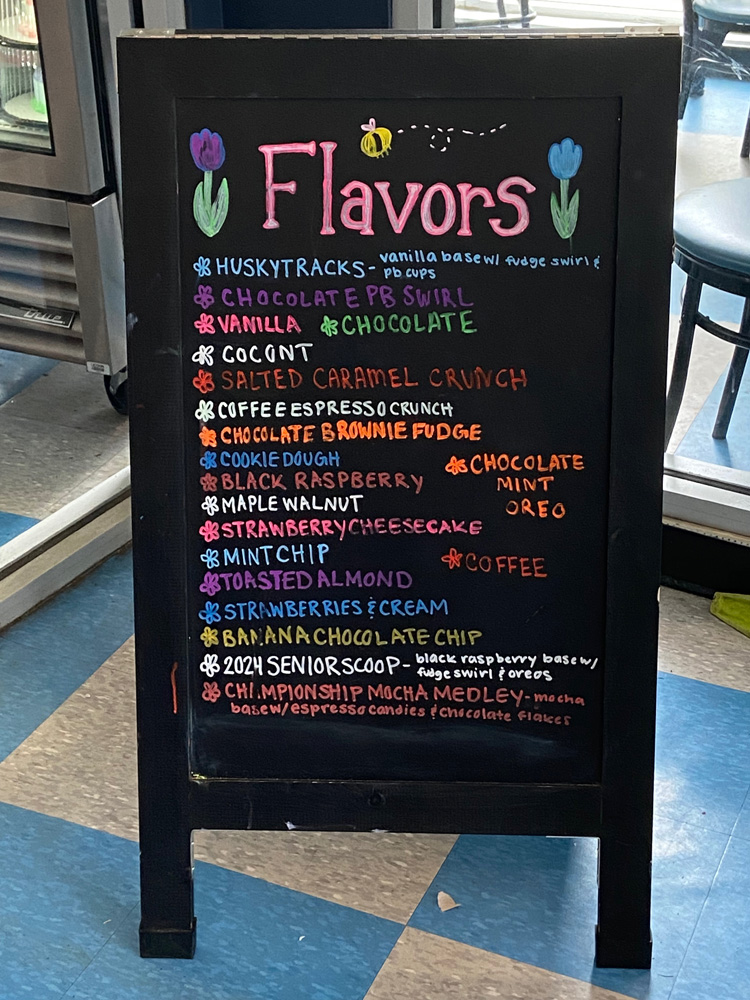 Flavors
HUSKY TRACKS - vanilla base w/ fudge swirl &
pb cups
CHOCOLATE PB SWIRL
VANILLA CHOCOLATE
COCONT
SALTED CARAMEL CRUNCH
COFFEE ESPRESSO CRUNCH
CHOCOLATE BROWNIE FUDGE
COOKIE DOUGH
CHOCOLATE
MINT
OREO
BLACK RASPBERRY
MAPLE WALNUT
STRAWBERRY CHEESECAKE
MINT CHIP
COFFEE
TOASTED ALMOND
STRAWBERRIES & CREAM
BANANA CHOCOLATE CHIP
2024 SENIOR SCOOP - black raspberry base w/
fudge swirl & oreos
CHAMPIONSHIP MOCHA MEDLEY - mocha
base w/ espresso candies & chocolate flakes